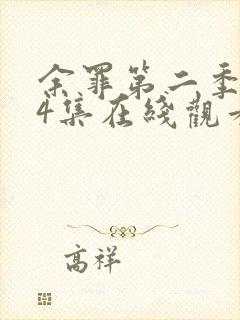 余罪第二季
4集在綫觀看
高祥